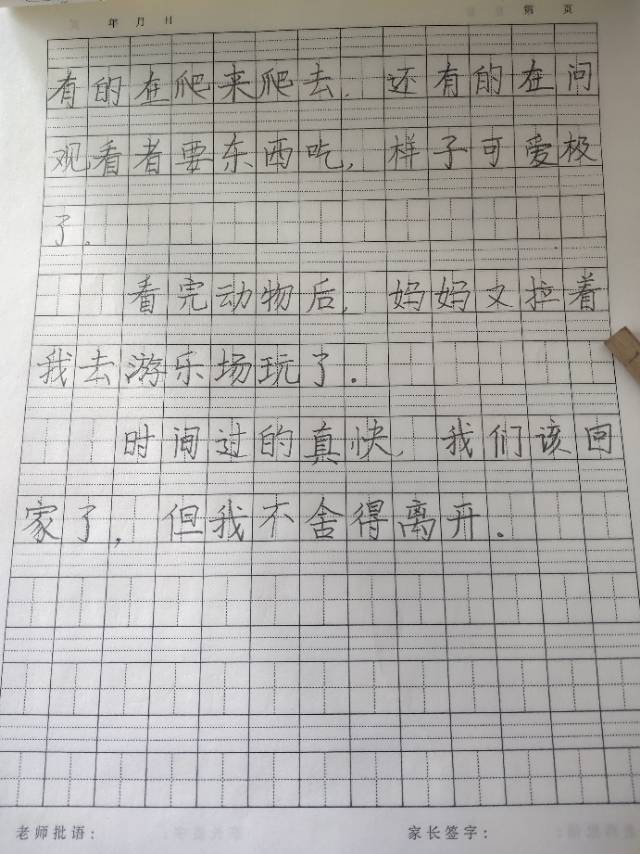 年 月 日 第 页
有的在爬来爬去. 还有的在问
观看者要东西吃, 样子可爱极
了.
看完动物后, 妈妈又拉着
我去游乐场玩了.
时间过的真快, 我们该回
家了, 但我不舍得离开.
老师批语: 家长签字: